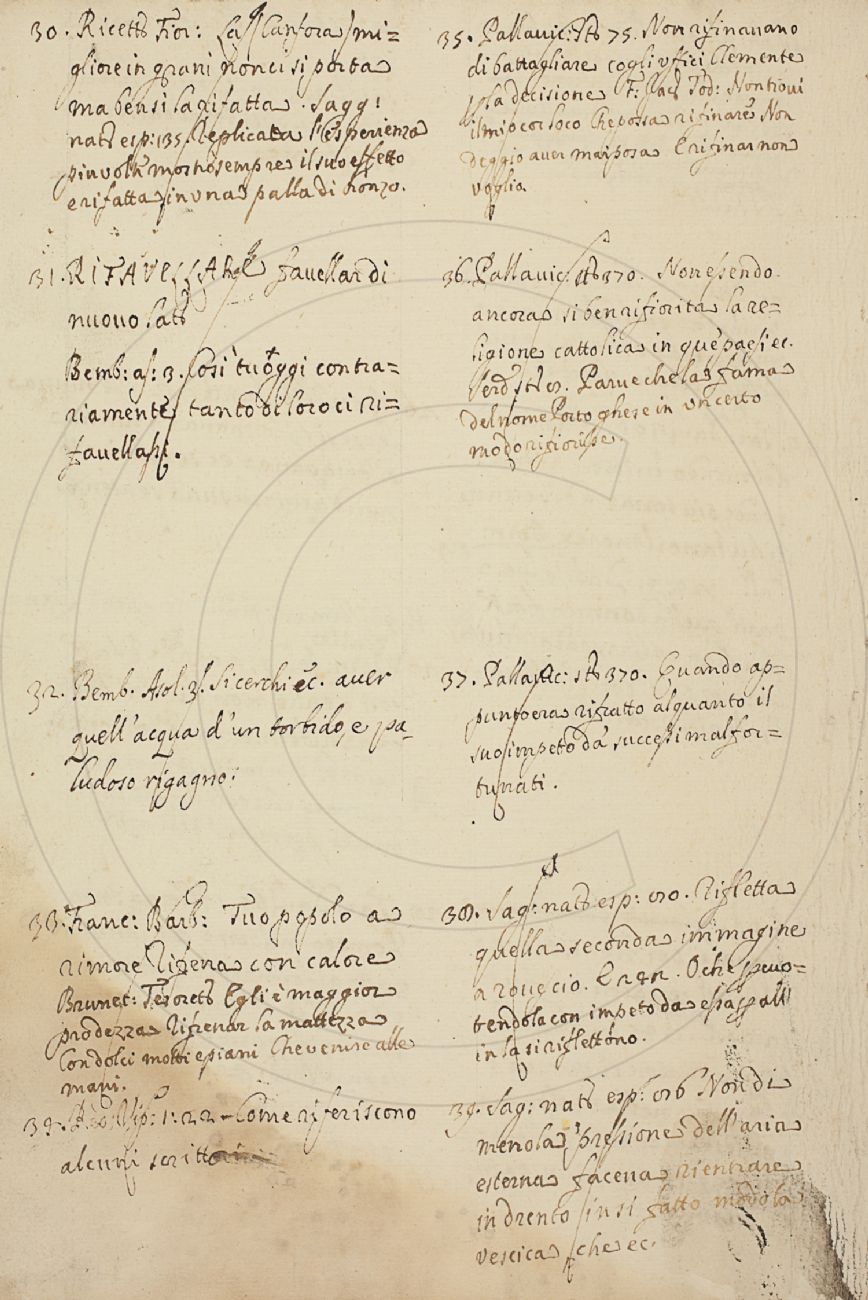 30. Ricett. Fior: La Canfora mi=
gliore in grani non ci si porta
ma bensi la rifatta. Sagg:
nat esp: 135. Replicata l'esperienza
piu volte mostro sempre il suo effetto
e rifatta in una palla di bronzo.
31. RIFAVELLARE favellar di
nuovo lat
Bemb: as: 3. Così tu oggi contra=
riamente tanto di loro ci ri=
favellassi.
32. Bemb. Asol. 3. Si cerchi ec. aver
quell'acqua d'un torbido, e pa=
ludoso rigagno:
33. Franc: Barb: Tuo popolo a
rimore Rifrena con calore
Brunet: Tesorett Egli è maggior
prodezza Rifrenar la mattezza
Con dolci motti e piani Che venire alle
mani.
34. 1. 22 Come riferiscono
alcuni scrittori
35. Pallavic: St 75. Non rifinavano
di battagliare cogli uffici Clemente
la decisione F: Jac Tod: Non trovi
il mio cor loco Che possa rifinare Non
deggio aver mai posa E rifinar non
voglio
36. Pallavic. St 370. Non essendo
ancora si ben rifiorita la re=
ligione cattolica in que' paesi ec.
Serd St Parue che la fama
del nome Portoghese in un certo
modo rifiorisse.
37. Pallavic: st 370. Quando ap=
punto era rifratto alquanto il
suo impeto da' successi malfor=
tunati.
38. Sag: nat esp: Rifletta
quella seconda immagine
a rovescio. E O che percuo=
tendola con impeto da essa palla
in la si riflettono.
39. Sag: nat esp: Non di
meno la pressione dell'aria
esterna faceva rientrare
in drento in si fatto modo la
vescica che ec.